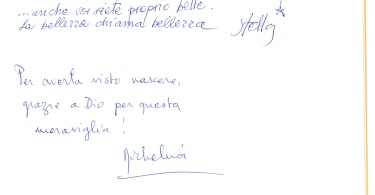 ...anche voi siete proprio belle.
La bellezza chiama bellezza Stella
Per averla visto nascere,
grazie a Dio per questa
meraviglia!